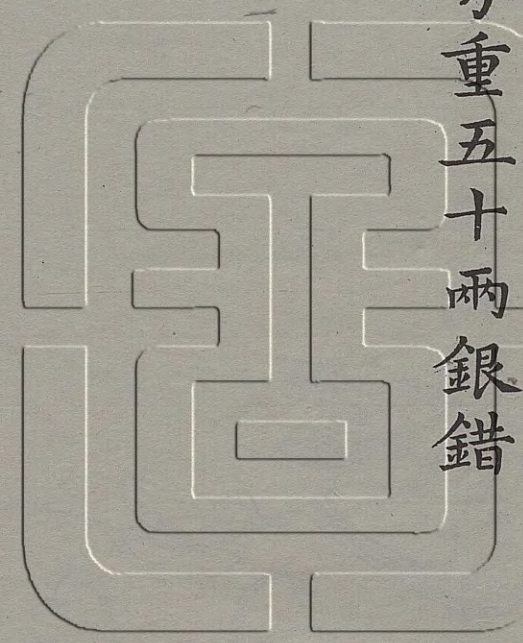 重五十兩銀錯